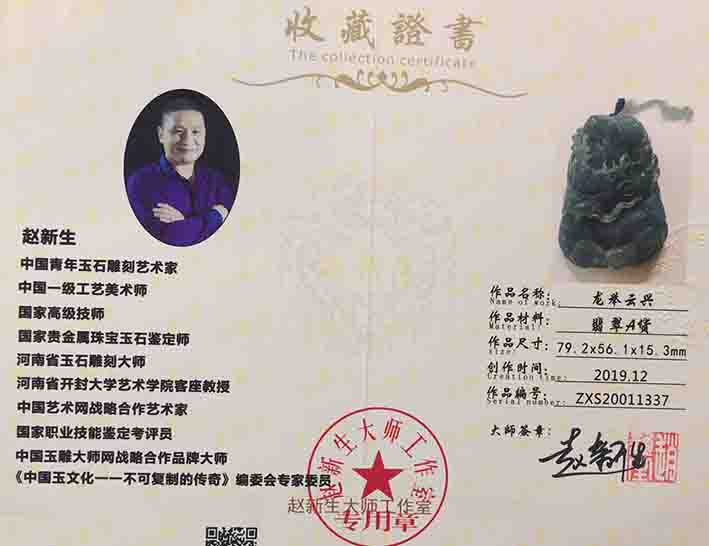 收藏證書
The collection certificate
赵新生
中国青年玉石雕刻艺术家
中国一级工艺美术师
国家高级技师
国家贵金属珠宝玉石鉴定师
河南省玉石雕刻大师
河南省开封大学艺术学院客座教授
中国艺术网战略合作艺术家
国家职业技能鉴定考评员
中国玉雕大师网战略合作品牌大师
《中国玉文化一一不可复制的传奇》编委会专家委员
作品名称: 龙举云兴
Name of work:
作品材料: 翡翠A货
Material:
作品尺寸: 79.2x56.1x15.3mm
size:
创作时间: 2019.12
Creation time:
作品编号: ZXS20011337
Serial number:
大师签章: 赵新生
赵新生大师工作室
赵新生大师工作室
专用章